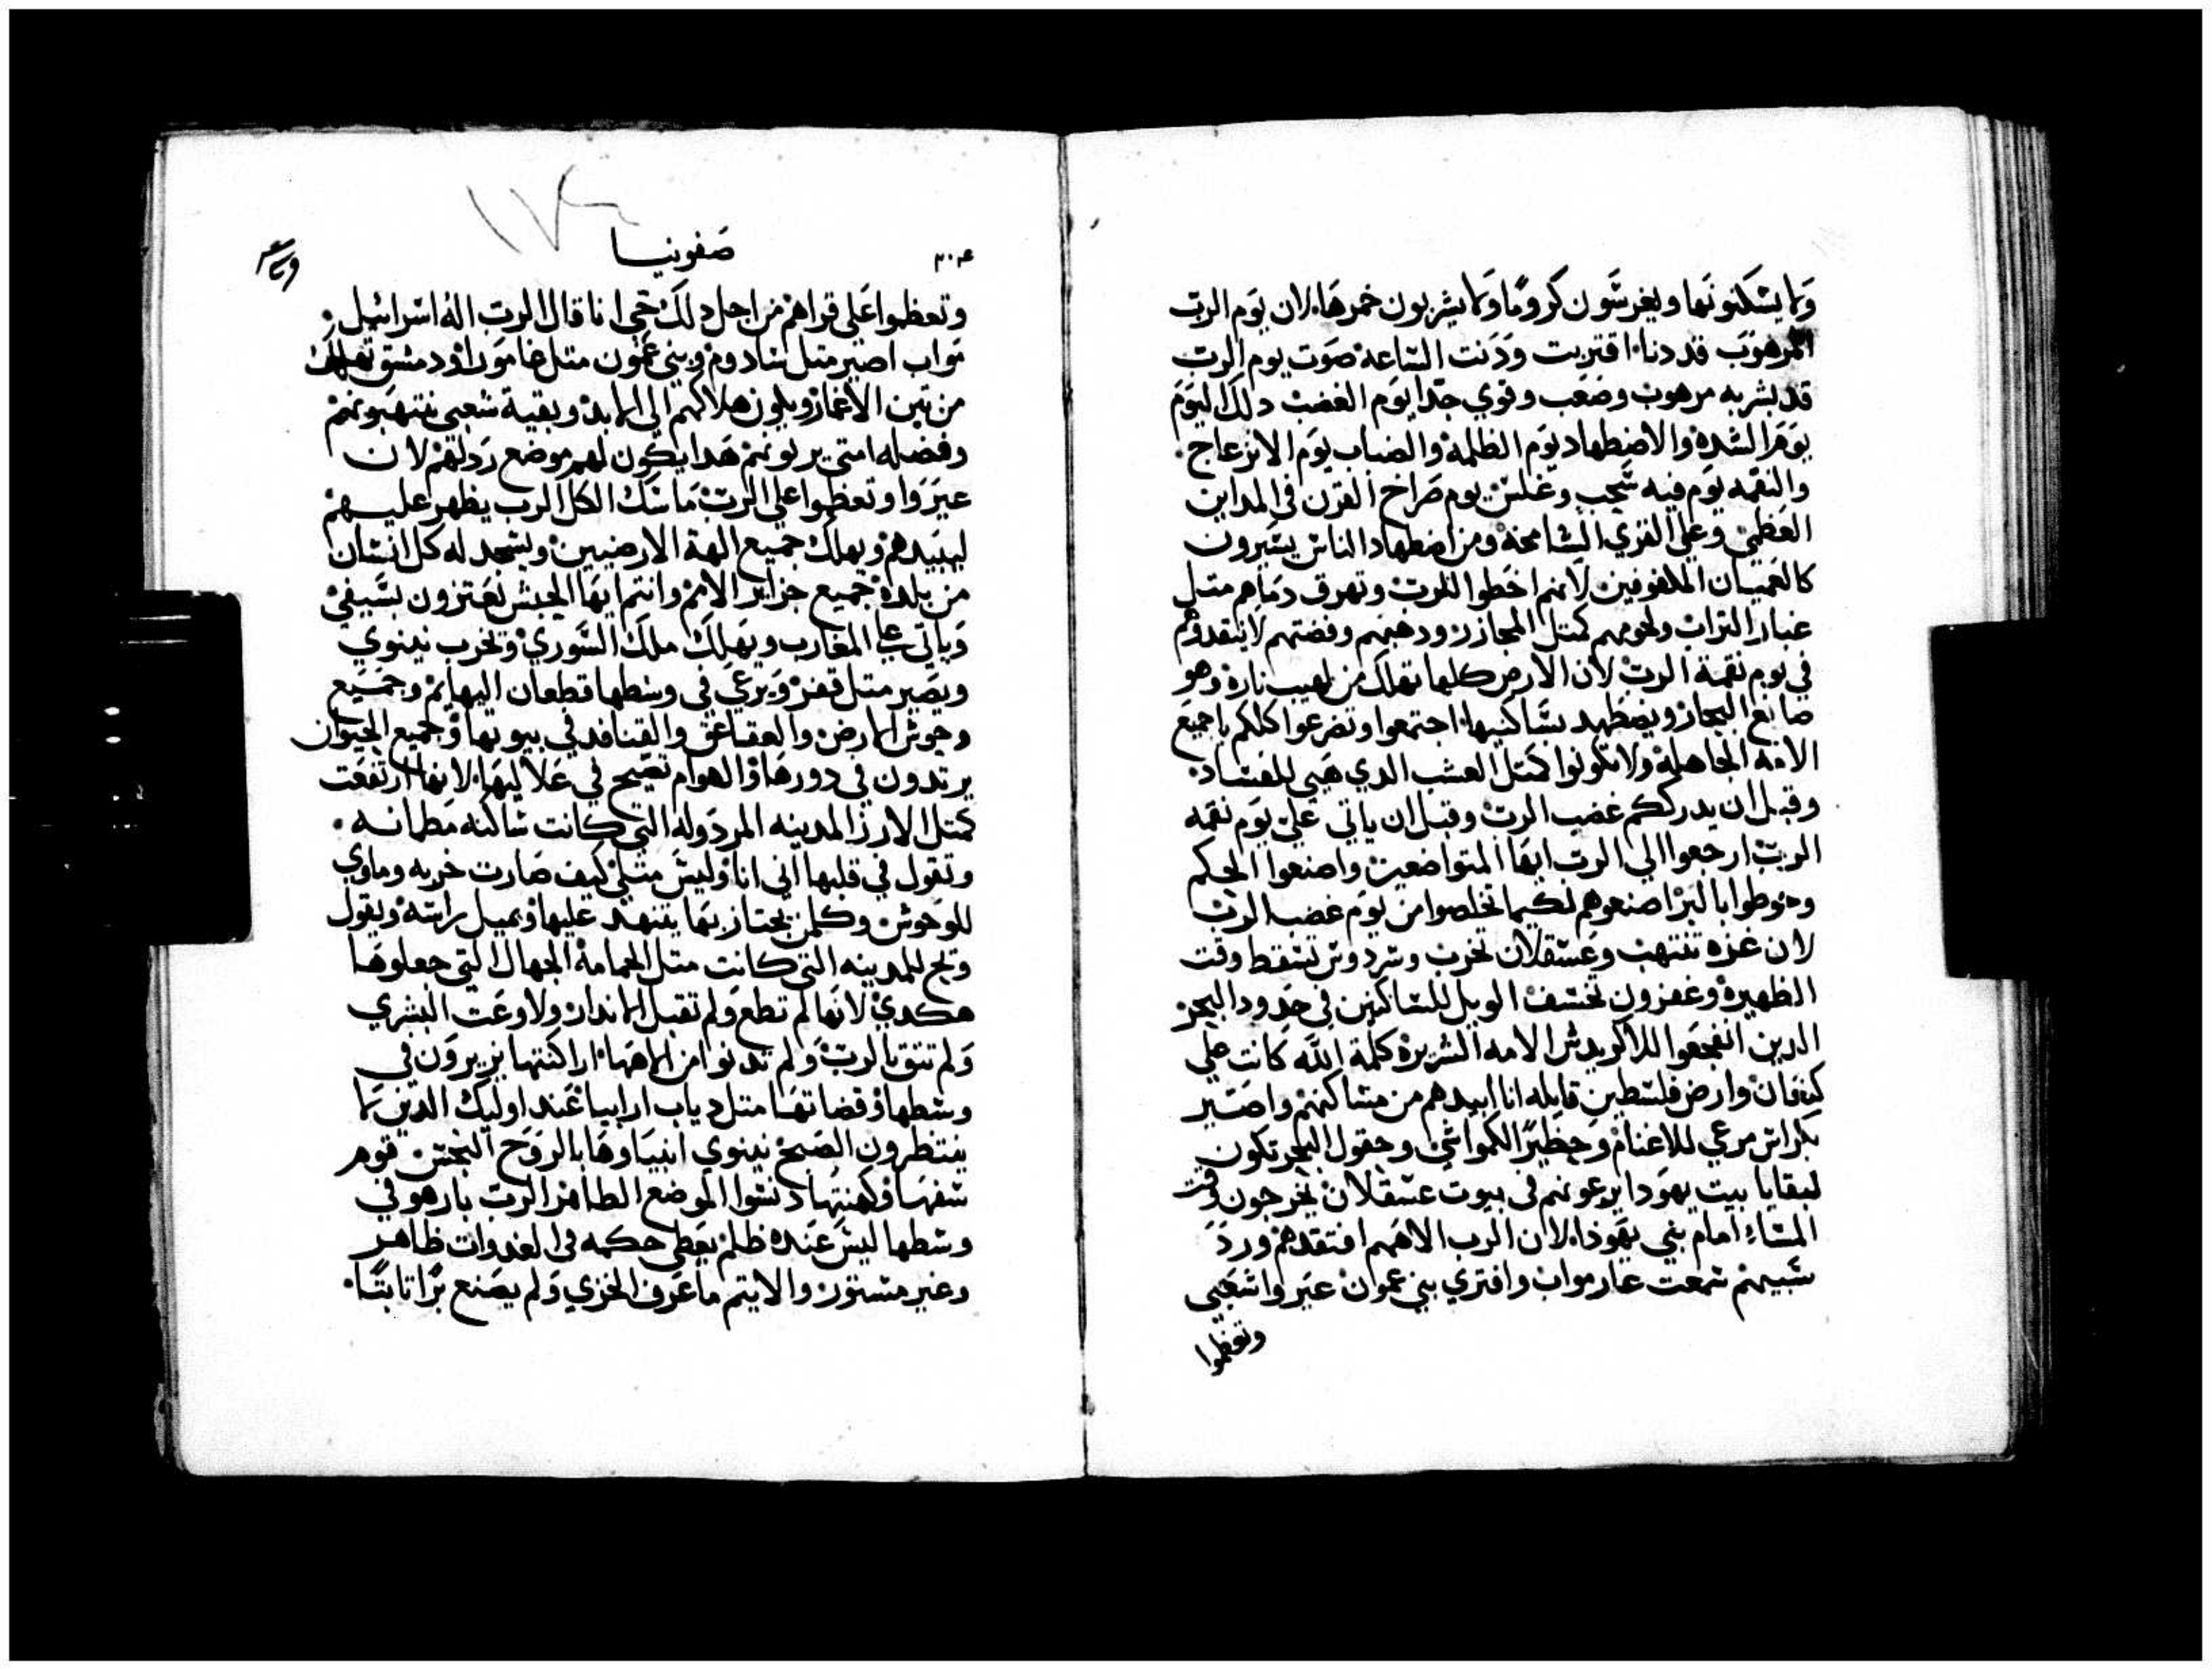 ولا يسكنونها ويغرسون كروما ولا يشربون خمرها لان يوم الرب
المرهوب قد دنا اقتربت ودنت الساعه صوت يوم الرب
قد بشر به مرهوب وصعب وقوي جدا يوم الغضب دلك اليوم
يوم الشده والاضطهاد يوم الظلمه والضباب يوم الانزعاج
والنقمه يوم فيه سحب وغلس يوم صراخ القرن في المداين
العظمي وعلي القري الشامخه ومن اضطهاد الناس يسيرون
كالعميان الملفوفين لانهم اخطوا للرب وتهرق دماهم متل
غبار التراب ولحومهم كمتل المجازر ودهبهم وفضتهم لا ينقدوهم
في يوم نقمة الرب لان الارض كلها تهلك من لهيب ناره وهو
صانع البحار ويضطهد ساكنيها اجتمعوا وتضرعوا كلكم يا جميع
الامه الجاهله ولا تكونوا كمتل العشب الدي هيى للفساد
وقبل ان يدرككم غضب الرب وقبل ان ياتي علي يوم نقمه
الرب ارجعوا الي الرب ايها المتواضعين واصنعوا الحكم
وحوطوا بالبر اصنعوهم لكيما تخلصوا من يوم غضب الرب
لان غزه تنتهب وعسقلان تخرب وسردوس تسقط وقت
الظهيره وعفزون تخسف الويل للساكنين في حدود البحر
الدين انفجعوا للاكريدس الامه الشريره كلمة الله كانت علي
كنعان وارض فلسطين قايله انا ابيدهم من مساكنهم واصير
بكراتس مرعي للاغنام وحظيرا للمواشي وحقول البحر تكون
لبقايا بيت يهودا يرعونهم في بيوت عسقلان يخرجون وقت
المساء امام بني يهودا لان الرب الاههم افتقدهم ورد
سبيهم سمعت عار مواب وافتري بني عمون عيروا شعبي
وتعظموا
٣٠٤
صفونيا
١٧٤
وتعظموا علي قراهم من اجل دلك حي انا قال الرب اله اسرائيل
مواب اصير متل سادوم وبني عمون متل غامورا ودمشق تهلك
من بين الاغمار ويكون هلاكهم الي الابد وبقية شعبي ينتهبونهم
وفضله امتي يرتونهم هدا يكون لهم موضع ردلتهم لان
عيروا وتعظموا علي الرب ماسك الكل الرب يظهر عليهم
ليبيدهم ويهلك جميع الهة الارضيين ويسجد له كل انسان
من بلده جميع جزاير الامم وانتم ايها الحبش تعتزون بسيفي
وياتي علي المغارب ويهلك ملك السوري وتخرب نينوي
ويصير متل قفر ويرعي في وسطها قطعان البهايم وجميع
وحوش الارض والعقاعق والقنافد في بيوتها وجميع الحيوان
يرتدون في دورها والهوام تصيح في علاليها لانها ارتفعت
كمتل الارز المدينه المردوله التي كانت ساكنه مطمانه
وتقول في قلبها اني انا وليس متلي كيف صارت خربه وماوي
للوحوش وكلمن يجتاز بها يتنهد عليها ويميل راسه ويقول
ويح للمدينه التي كانت متل الحمامه الجهال التي جعلوها
هكدي لانها لم تطع ولم تقبل الاندار ولا وعت البشري
ولم تتق بالرب ولم تدنوا من الاهها اراكنتها يزيرون في
وسطها وقضاتها متل دياب ارابيا عند اوليك الدين لا
ينتظرون الصبح نينوي انبياوها بالروح النجس قوم
سفها وكهنتها دنسوا الموضع الطاهر الرب بار هو في
وسطها ليس عنده ظلم يعطي حكمه في الغدوات ظاهر
وغير مستور والايتم ما عرف الخزي ولم يصنع برا تابتا